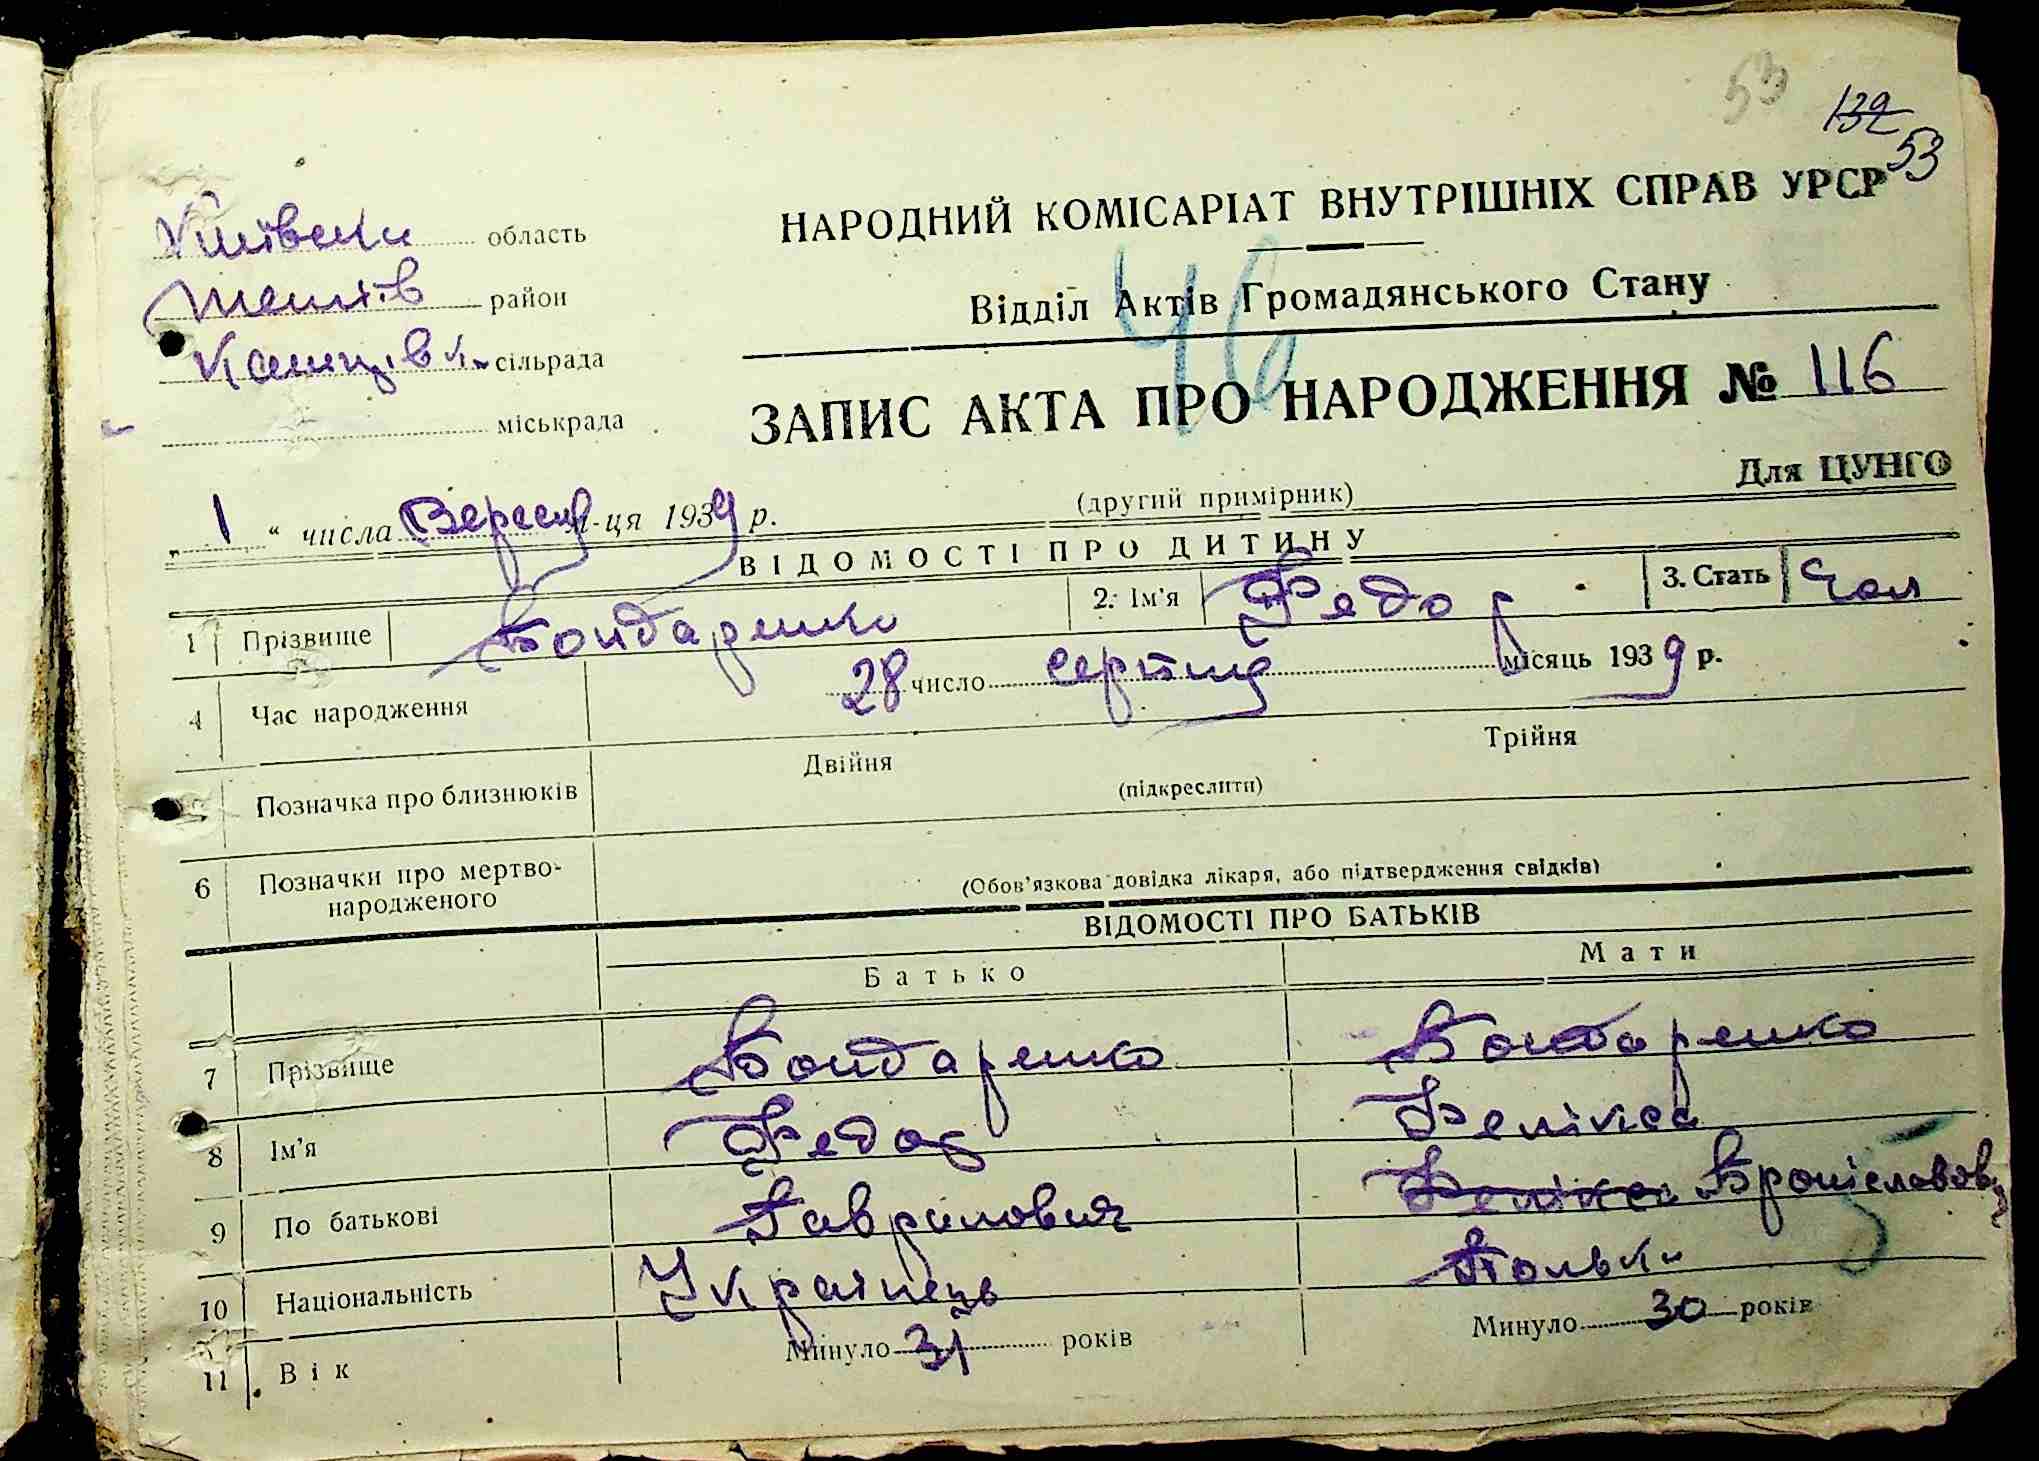 53
132
53
Київськ область
Тетіїв район
Кашпівк. сільрада
міськрада
НАРОДНИЙ КОМІСАРІАТ ВНУТРІШНІХ СПРАВ УРСР
Відділ Актів Громадянського Стану
46
ЗАПИС АКТА ПРО НАРОДЖЕННЯ № 116
Для ЦУНГО
(другий примірник)
„ 1 " числа Вересня м-ця 1939 р.
ВІДОМОСТІ ПРО ДИТИНУ
1 Прізвище Бондаренко 2. Ім'я Федор 3. Стать Чол
4 Час народження 28 число серпня місяць 1939 р.
Позначка про близнюків Двійня Трійня
(підкреслити)
6 Позначки про мертво-
народженого (Обов'язкова довідка лікаря, або підтвердження свідків)
ВІДОМОСТІ ПРО БАТЬКІВ
Батько Мати
7 Прізвище Бондаренко Бондаренко
8 Ім'я Федор Фелікса
9 По батькові Гаврилович Фелікса Броніславов
10 Національність Українець Полька
11 Вік Минуло 31 років Минуло 30 років